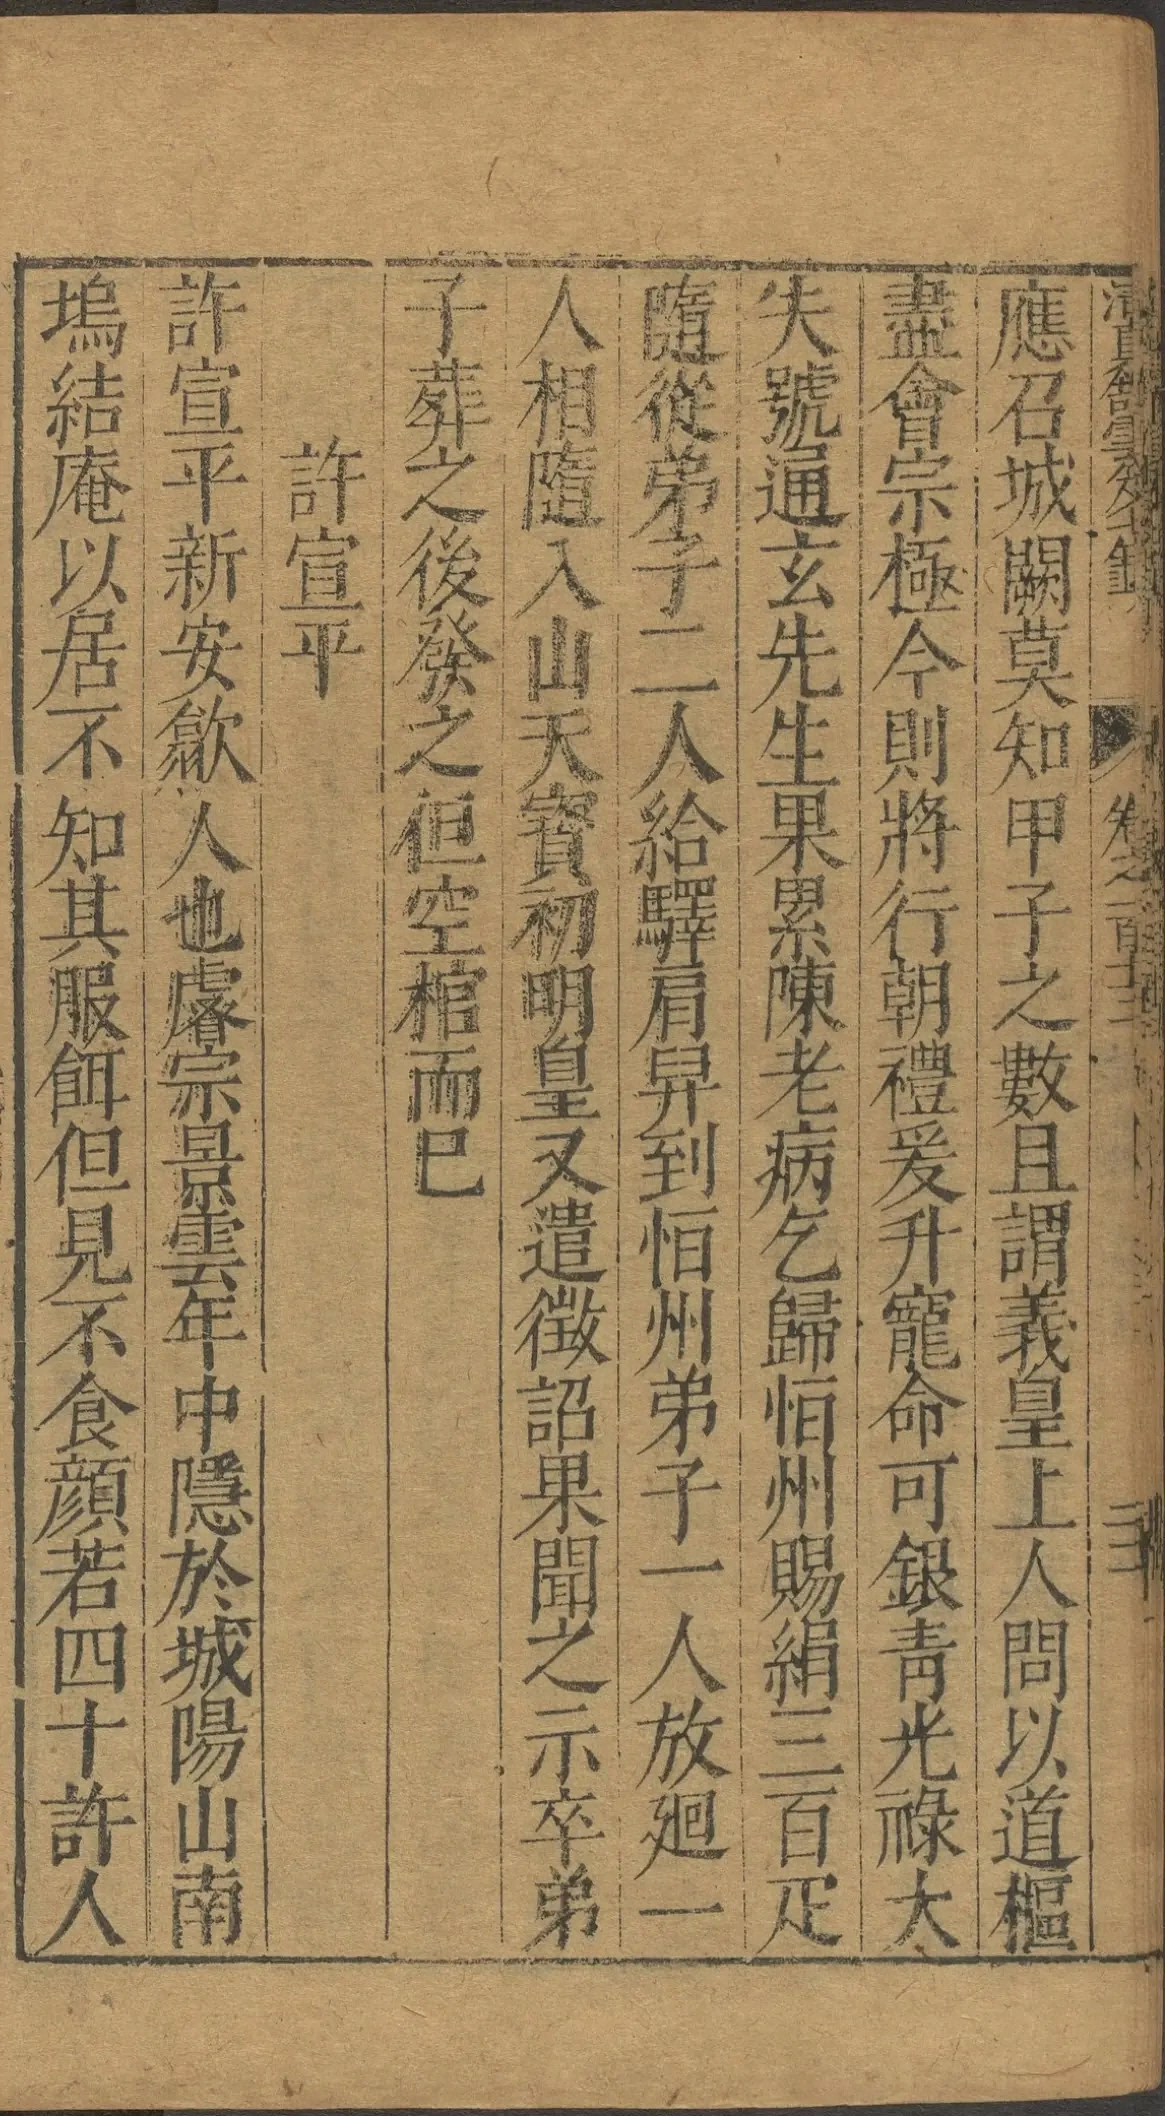 清真舘雲笈七籤 卷之一百十三 三
應召城闕莫知甲子之數且謂義皇上人問以道樞
盡會宗極今則將行朝禮爰升寵命可銀青光祿大
夫號通玄先生果累陳老病乞歸恒州賜絹三百疋
隨從弟子二人給驛肩舁到恒州弟子一人放廻一
人相隨入山天寶初明皇又遣徵詔果聞之示卒弟
子葬之後發之但空棺而巳
許宣平
許宣平新安歙人也睿宗景雲年中隱於城陽山南
塢結庵以居不知其服餌但見不食顔若四十許人